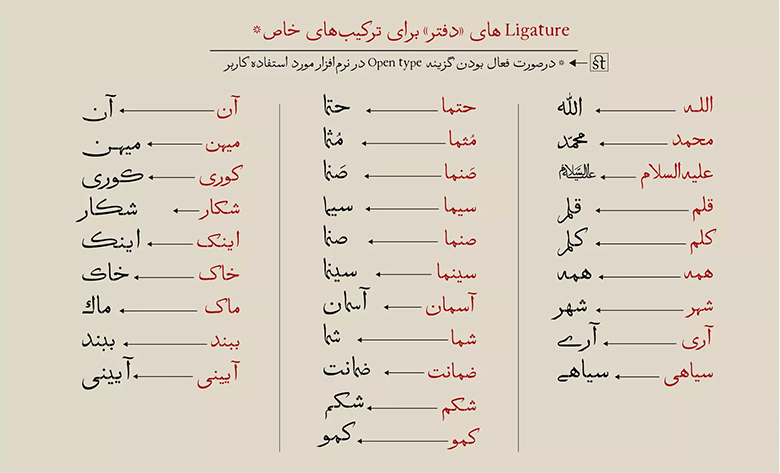 Ligature های «دفتر» برای ترکیب‌های خاص*
st * درصورت فعال بودن گزیند Open type در نرم‌افزار مورد استفاده کاربر
اللـه الله
محمد محمّد
علیه‌السلام علیه‌السلام
قلم قلم
کلم کلم
همه همه
شهر شهر
آری آرے
سیاهی سیاهے
حتما حتما
مُثما مُثما
صَنما صَنما
سیما سیما
صنما صنما
سینما سینما
آسمان آسمان
شما شما
ضمانت ضمانت
شکم شکم
کمو کمو
آن آن
میهن میهـن
کوری کوری
شکار شکار
اینک اینک
خاک خاک
ماک ماك
ببند ببند
آیینی آیینی